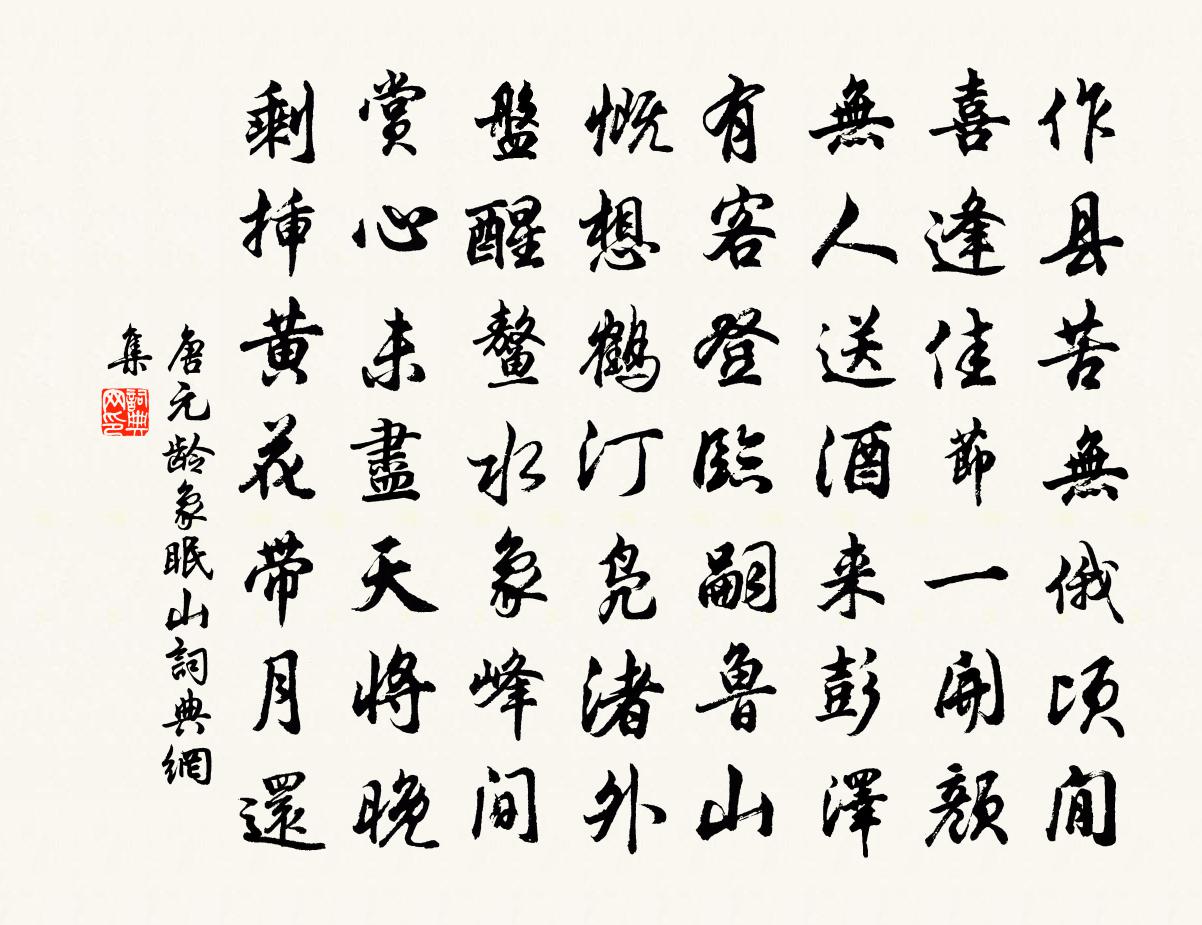 作县苦無俄頃閒
喜逢佳節一開顔
無人送酒来彭澤
有客登臨嗣魯山
慨想鶴汀凫渚外
盤醒鰲水象峰间
賞心未盡天將晚
剩挿黄花帶月還
唐元龄象眠山詞典網
集
詞典网印